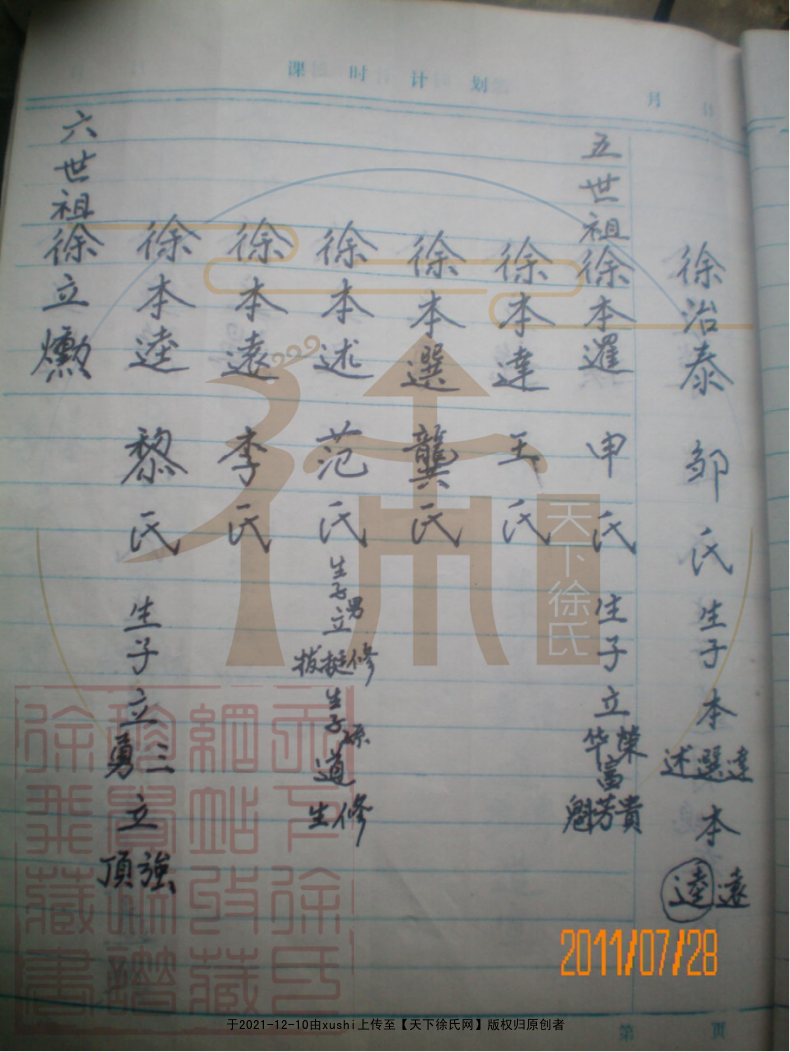 课时计划
月 日
徐治泰 邹氏 生子 本達選述 本遠逵
五世祖 徐本邏 申氏 生子立榮华富貴芳魁
徐本達 王氏
徐本選 龔氏
徐本述 范氏 生子男立修挺拔 生子孫道修生
徐本遠 李氏
徐本逵 黎氏 生子立三勇立強頂
六世祖 徐立勲
天下徐氏
2011/07/28
第 页
于2021-12-10由xushi上传至【天下徐氏网】版权归原创者